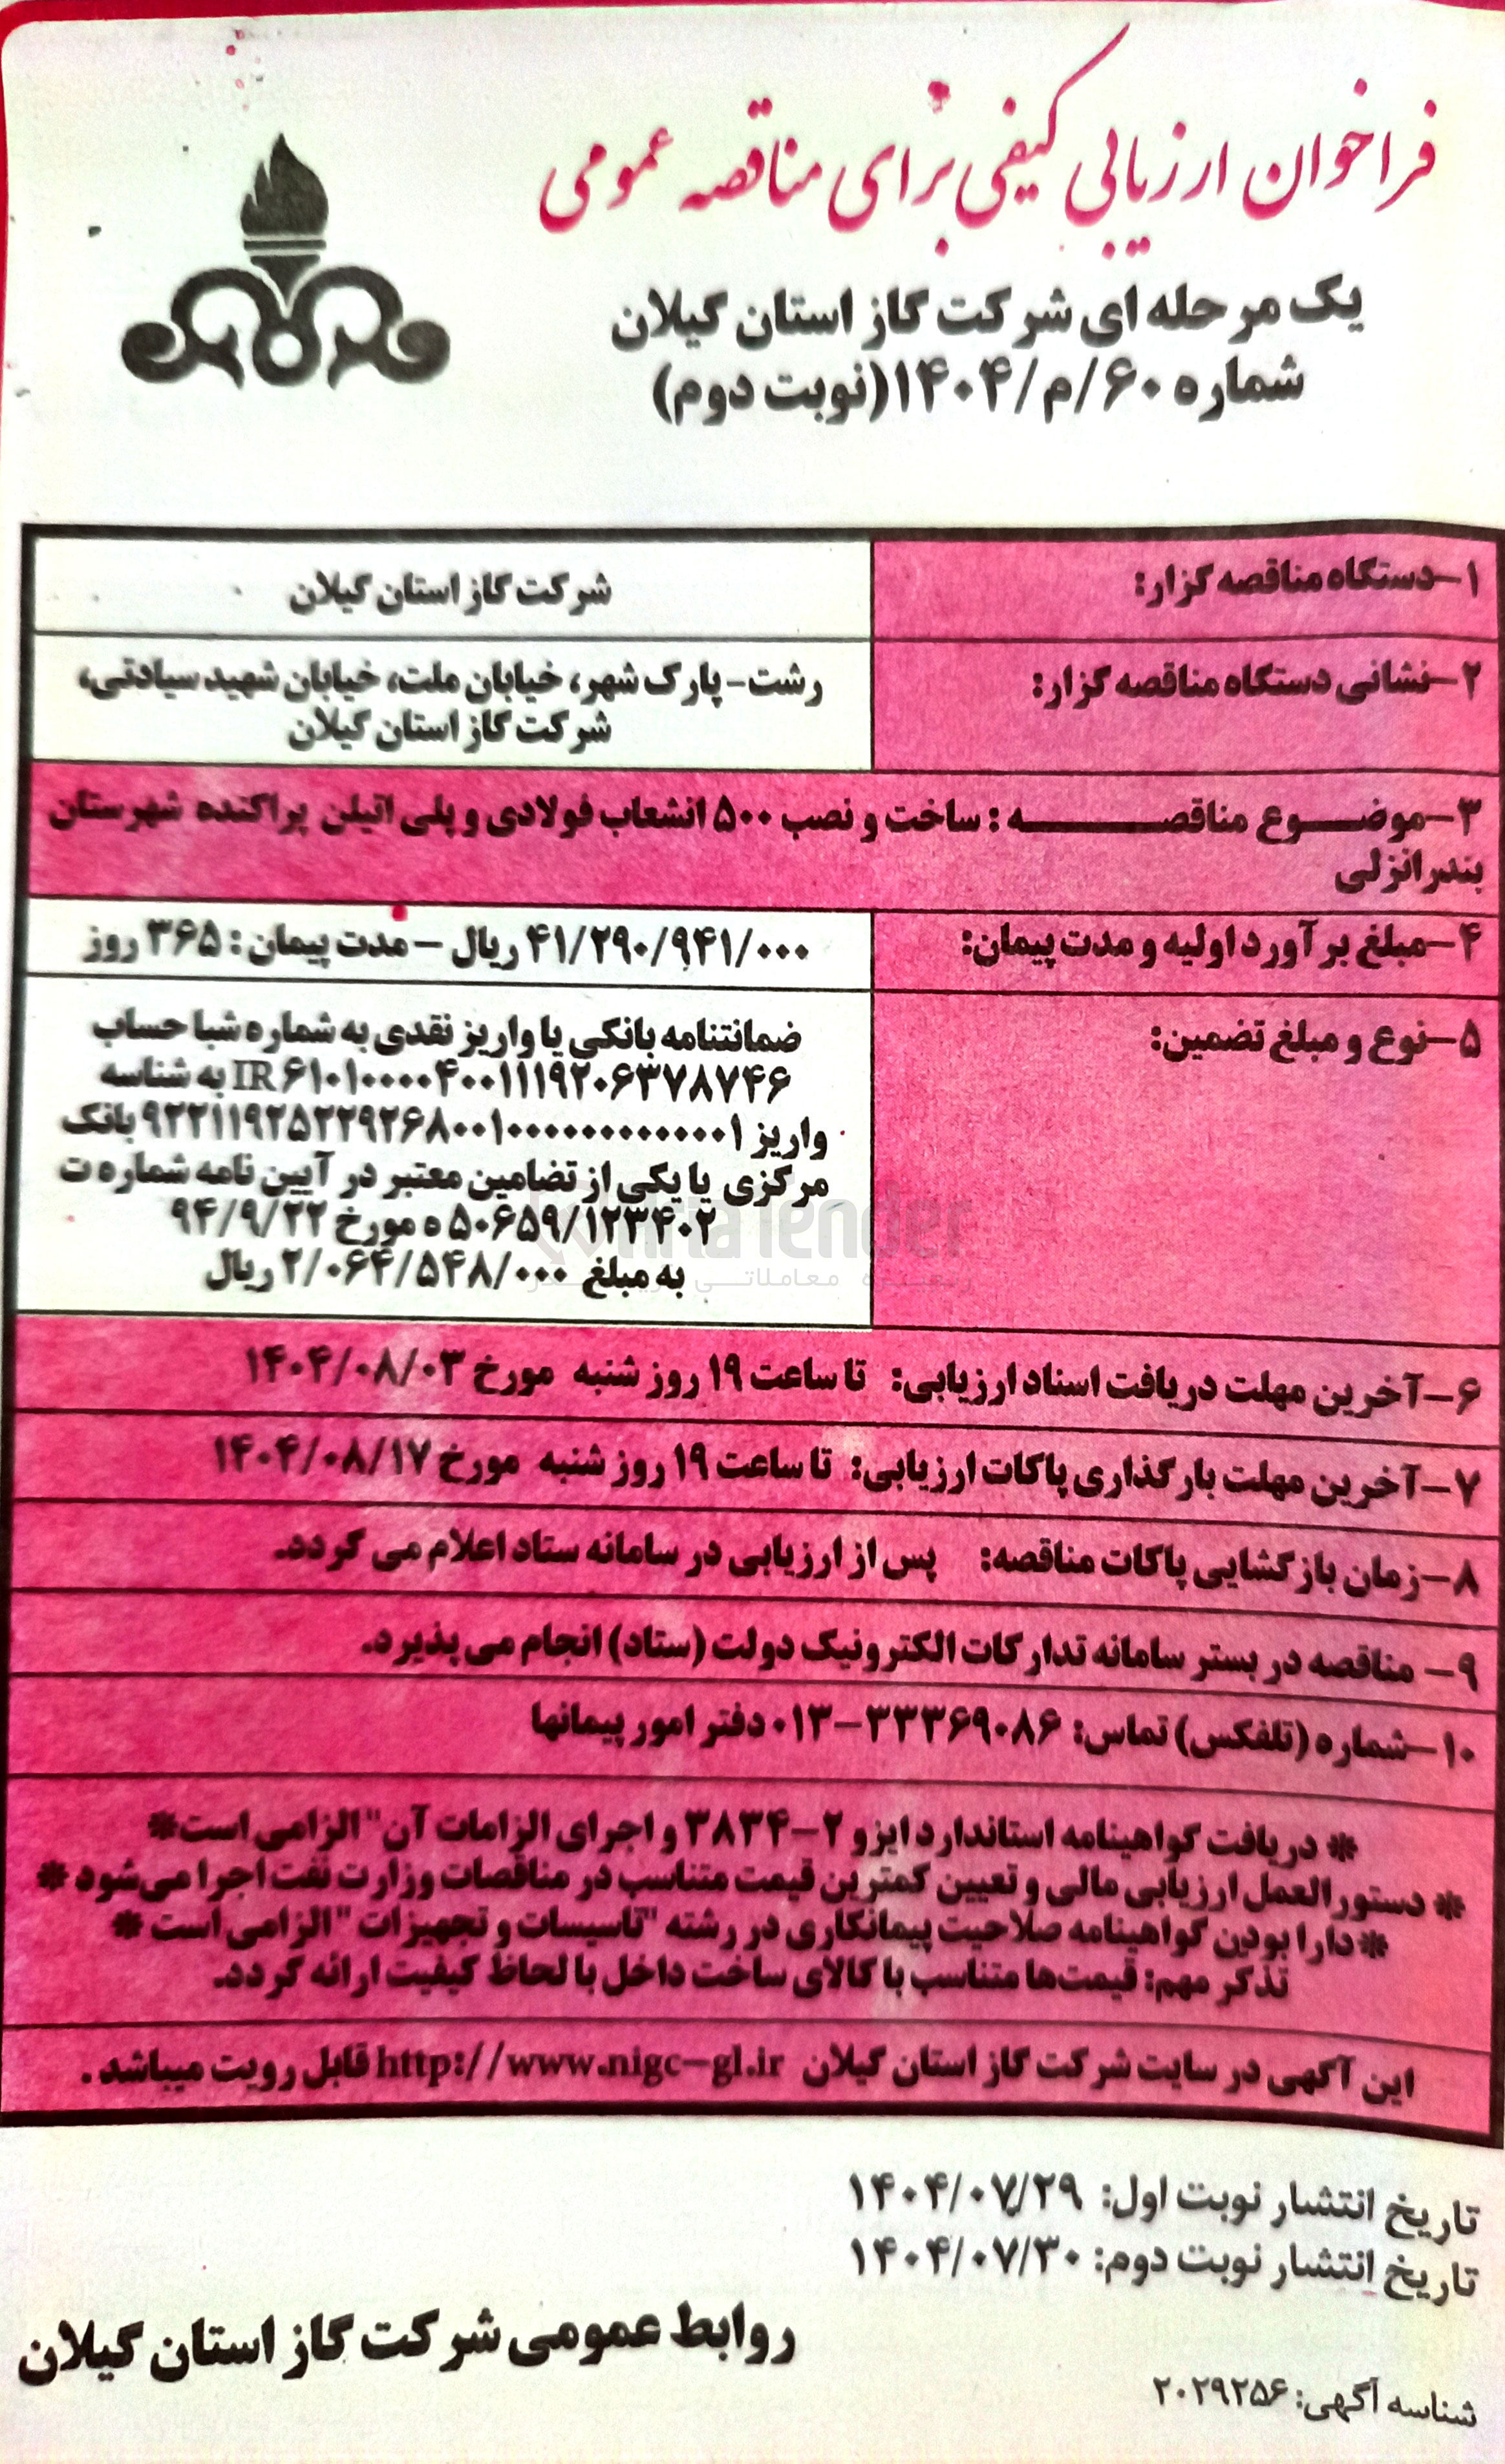 فراخوان ارزیابی کیفی برای مناقصه عمومی
یک مرحله ای شرکت گاز استان گیلان
شماره ۶۰/م/۱۴۰۴(نوبت دوم)
۱-دستگاه مناقصه گزار:
شرکت گاز استان گیلان
۲-نشانی دستگاه مناقصه گزار:
رشت- پارک شهر، خیابان ملت، خیابان شهید سیادتی،
شرکت گاز استان گیلان
۳-موضوع مناقصه : ساخت و نصب ۵۰۰ انشعاب فولادی و پلی اتیلن پراکنده شهرستان
بندرانزلی
۴-مبلغ برآورد اولیه و مدت پیمان:
۴۱/۲۹۰/۹۴۱/۰۰۰ ریال – مدت پیمان : ۳۶۵ روز
۵-نوع و مبلغ تضمین:
ضمانتنامه بانکی یا واریز نقدی به شماره شبا حساب
IR۶۱۰۱۰۰۰۰۴۰۰۱۱۱۹۲۰۶۳۷۸۷۴۶ به شناسه
واریز ۹۲۲۱۱۹۲۵۲۲۹۲۶۸۰۰۱۰۰۰۰۰۰۰۰۰۰۰۰۱ بانک
مرکزی یا یکی از تضامین معتبر در آیین نامه شماره ت
۵۰۶۵۹/۱۲۳۴۰۲ ه مورخ ۹۴/۹/۲۲
به مبلغ ۲/۰۶۴/۵۴۸/۰۰۰ ریال
۶-آخرین مهلت دریافت اسناد ارزیابی: تا ساعت ۱۹ روز شنبه مورخ ۱۴۰۴/۰۸/۰۳
۷-آخرین مهلت بارگذاری پاکات ارزیابی: تا ساعت ۱۹ روز شنبه مورخ ۱۴۰۴/۰۸/۱۷
۸-زمان بازگشایی پاکات مناقصه: پس از ارزیابی در سامانه ستاد اعلام می گردد.
۹- مناقصه در بستر سامانه تدارکات الکترونیک دولت (ستاد) انجام می پذیرد.
۱۰-شماره (تلفکس) تماس: ۳۳۳۶۹۰۸۶-۰۱۳ دفتر امور پیمانها
* دریافت گواهینامه استاندارد ایزو ۲-۳۸۳۴ و اجرای الزامات آن" الزامی است*
* دستورالعمل ارزیابی مالی و تعیین کمترین قیمت متناسب در مناقصات وزارت نفت اجرا می‌شود *
*دارا بودن گواهینامه صلاحیت پیمانکاری در رشته "تاسیسات و تجهیزات "الزامی است *
تذکر مهم: قیمت‌ها متناسب با کالای ساخت داخل با لحاظ کیفیت ارائه گردد.
این آگهی در سایت شرکت گاز استان گیلان http://www.nigc-gl.ir قابل رویت میباشد .
تاریخ انتشار نوبت اول: ۱۴۰۴/۰۷/۲۹
تاریخ انتشار نوبت دوم: ۱۴۰۴/۰۷/۳۰
روابط عمومی شرکت گاز استان گیلان
شناسه آگهی: ۲۰۲۹۲۵۶